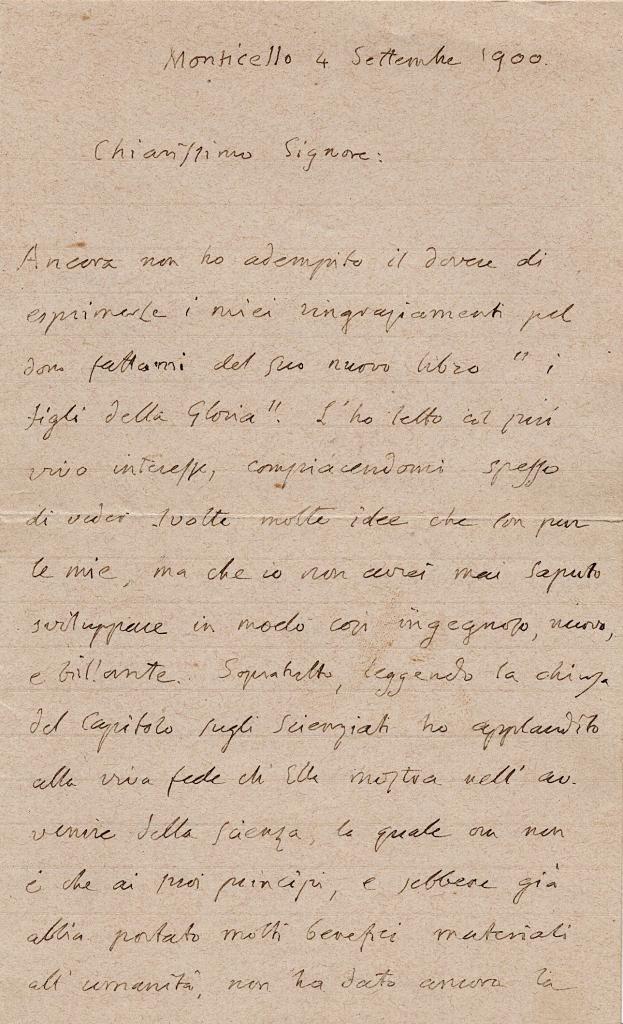 Monticello 4 Settembre 1900.
Chiarissimo Signore:
Ancora non ho adempito il dovere di
esprimerLe i miei ringraziamenti pel
dono fattomi del suo nuovo libro "i
figli della Gloria". L'ho letto col più
vivo interesse, compiacendomi spesso
di veder svolte molte idee che son pur
le mie, ma che io non avrei mai saputo
sviluppare in modo così ingegnoso, nuovo,
e brillante. Sopratutto, leggendo la chiusa
del Capitolo sugli Scienziati ho applaudito
alla viva fede ch'Ella mostra nell'av-
venire della scienza, la quale ora non
è che ai suoi principi, e sebbene già
abbia portato molti benefici materiali
all'umanità, non ha dato ancora la